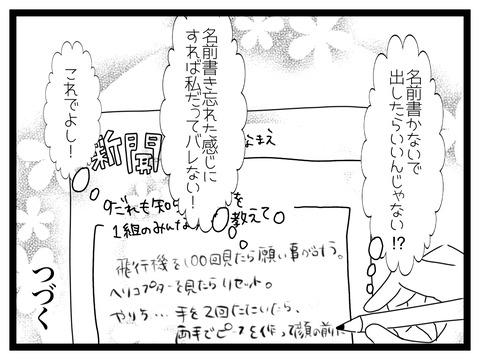 名前書かないで
出したらいいんじゃない!?
名前書き忘れた感じに
すれば私だってバレない!
これでよし!
新聞
なまえ
のだれも知
を教えて
1組のみんな
飛行機を100回見たら願い事が叶う。
ヘリコプターを見たらリセット。
やりち…手を2回たたいたら、
両手でピースを作って顔の前に
つづく